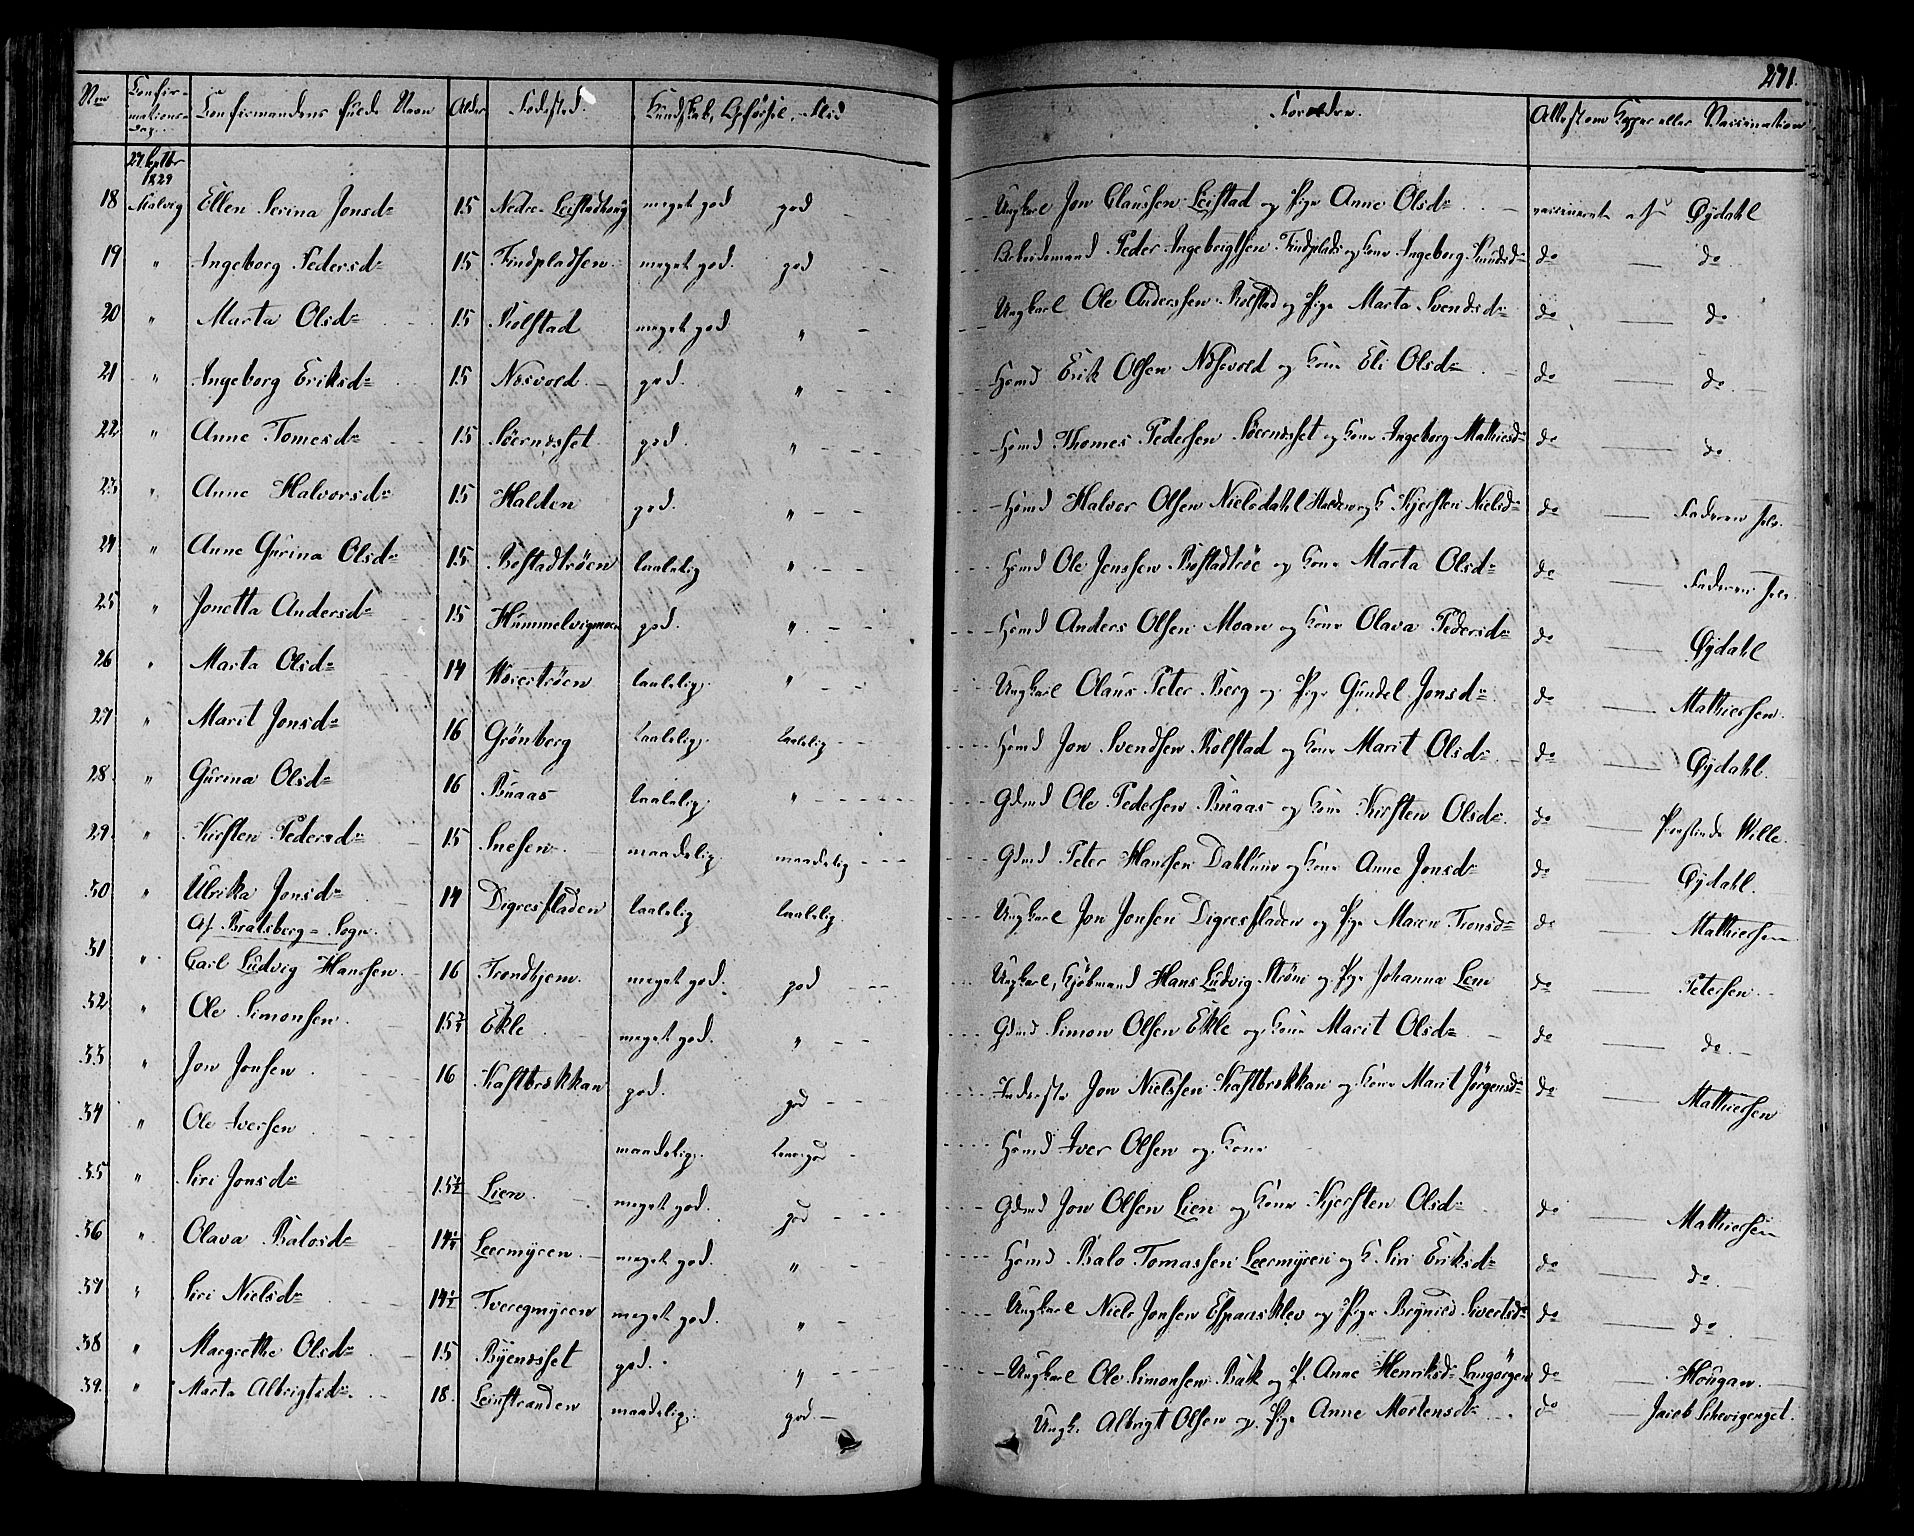 271.
No Confirmations-Dag. Confirmandens fulde Navn Alder Fødested. Kundskab, Opførsel, Flid Forældre. Attest om Kopper eller Vaccination
27 Septbr 1829
18 Malvig Ellen Serina Jonsd= 15 Nedre Leistadhoug meget god god Ungkarl Jon Claussen Leistad og Pige Anne Olsd= vaccineret af Øydahl
19 " Ingeborg Pedersd= 15 Findpladsen meget god. god Arbeidsmand Peder Ingebrigtsen Findplads og Kone Ingeborg Knudsd= do do
20 " Marta Olsd= 15 Rolstad meget god " Ungkarl Ole Anderssen Rolstad og Pige Marta Svendsd= do do
21 " Ingeborg Eriksd= 15 Nosvold god. " Hsmd Erik Olsen Nosvold og Kone Eli Olsd= do do
22 " Anne Tomesd= 15 Söernæsset god. " Hsmd Thomes Pedersen Söernæsset og Kone Ingeborg Mathiesd= do do
23 " Anne Halvorsd= 15 Halden god. " Hsmd Halvor Olsen Nielsdahl Halden og K Kjersten Nielsd= do Faderen selv
24 " Anne Gurina Olsd= 15 Bostadtröen taalelig " Hsmd Ole Jenssen Bostadtröe og Kone Marta Olsd= do Faderen selv
25 " Jonetta Andersd= 15 Hummelvigmoen god. " Hsmd Anders Olsen Moan og Kone Olava Pedersd= do Øydahl
26 " Marta Olsd= 14 taalelig. " Ungkarl Olaus Peter Berg og Pige Gundel Jonsd= do Mathiessen.
27 " Marit Jonsd= 16 Grönberg taalelig. taalelig Hsmd Jon Svendsen Rolstad og Kone Marit Olsd= do Øydahl.
28. " Gurina Olsd= 16 Buaas taalelig. " Gdmd Ole Pedersen Buaas og Kone Kirsten Olsd=. do Præstinde Wille.
29. " Kirsten Pedersd= 15 Snesen maadelig. maadelig Gdmd Peter Hanssen Dahlum og Kone Anne Jonsd= do Øydahl.
30 " Ulrika Jonsd= 14 Digresfladen taalelig taalelig. Ungkarl Jon Jonsen Digresfladen og Pige Maren Tronsd= do Mathiessen
Af Bratsberg=Sogn.
31 " Carl Ludvig Hanssen 16 Trondhjem. meget god. god Ungkarl, Kjöbmand Hans Ludvig Ström og Pige Johanna Lem do Petersen
32 " Ole Simonsen 15 3/4 Ekle meget god. " Gdmd Simon Olsen Ekle og Kone Marit Olsd= do do.
33 " Jon Jonsen 16 Kastbrekkan god. god Inderste Jon Nielssen Kastbrekkan og Kone Marit Jörgensd= do Mathiessen
34 " Ole Iversen maadelig. Hsmd Iver Olsen og Kone
35 " Siri Jonsd= 15 1/2 Lien. meget god. god Gdmd Jon Olsen Lien og Kone Kjersten Olsd= do Mathiessen
36 " Olava Balosd= 14 1/4 Leermyren. meget god. " Hsmd Balo Tomassen Leermyren og K. Siri Eriksd= do do.
37 " Siri Nielsd= 14 1/2 Tveregmyren meget god. " Ungkarl Niels Jonsen Espaasklev og Pige Brynild Sivertsd= do do.
38 " Margrethe Olsd= 15 Byenæsset god. " Ungkarl Ole Simonsen Bak og P. Anne Henriksd= Langörgen do Hougan.
39. " Marta Albrigtsd= 18. Leinstranden maadelig. god Ungk. Albrigt Olsen og Pige Anne Mortensd= do Jacob Schevigenget.